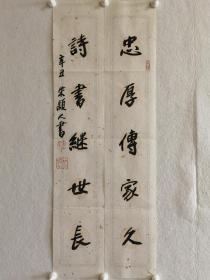 忠厚傳家久
詩書继世長
辛丑 宋頴人書